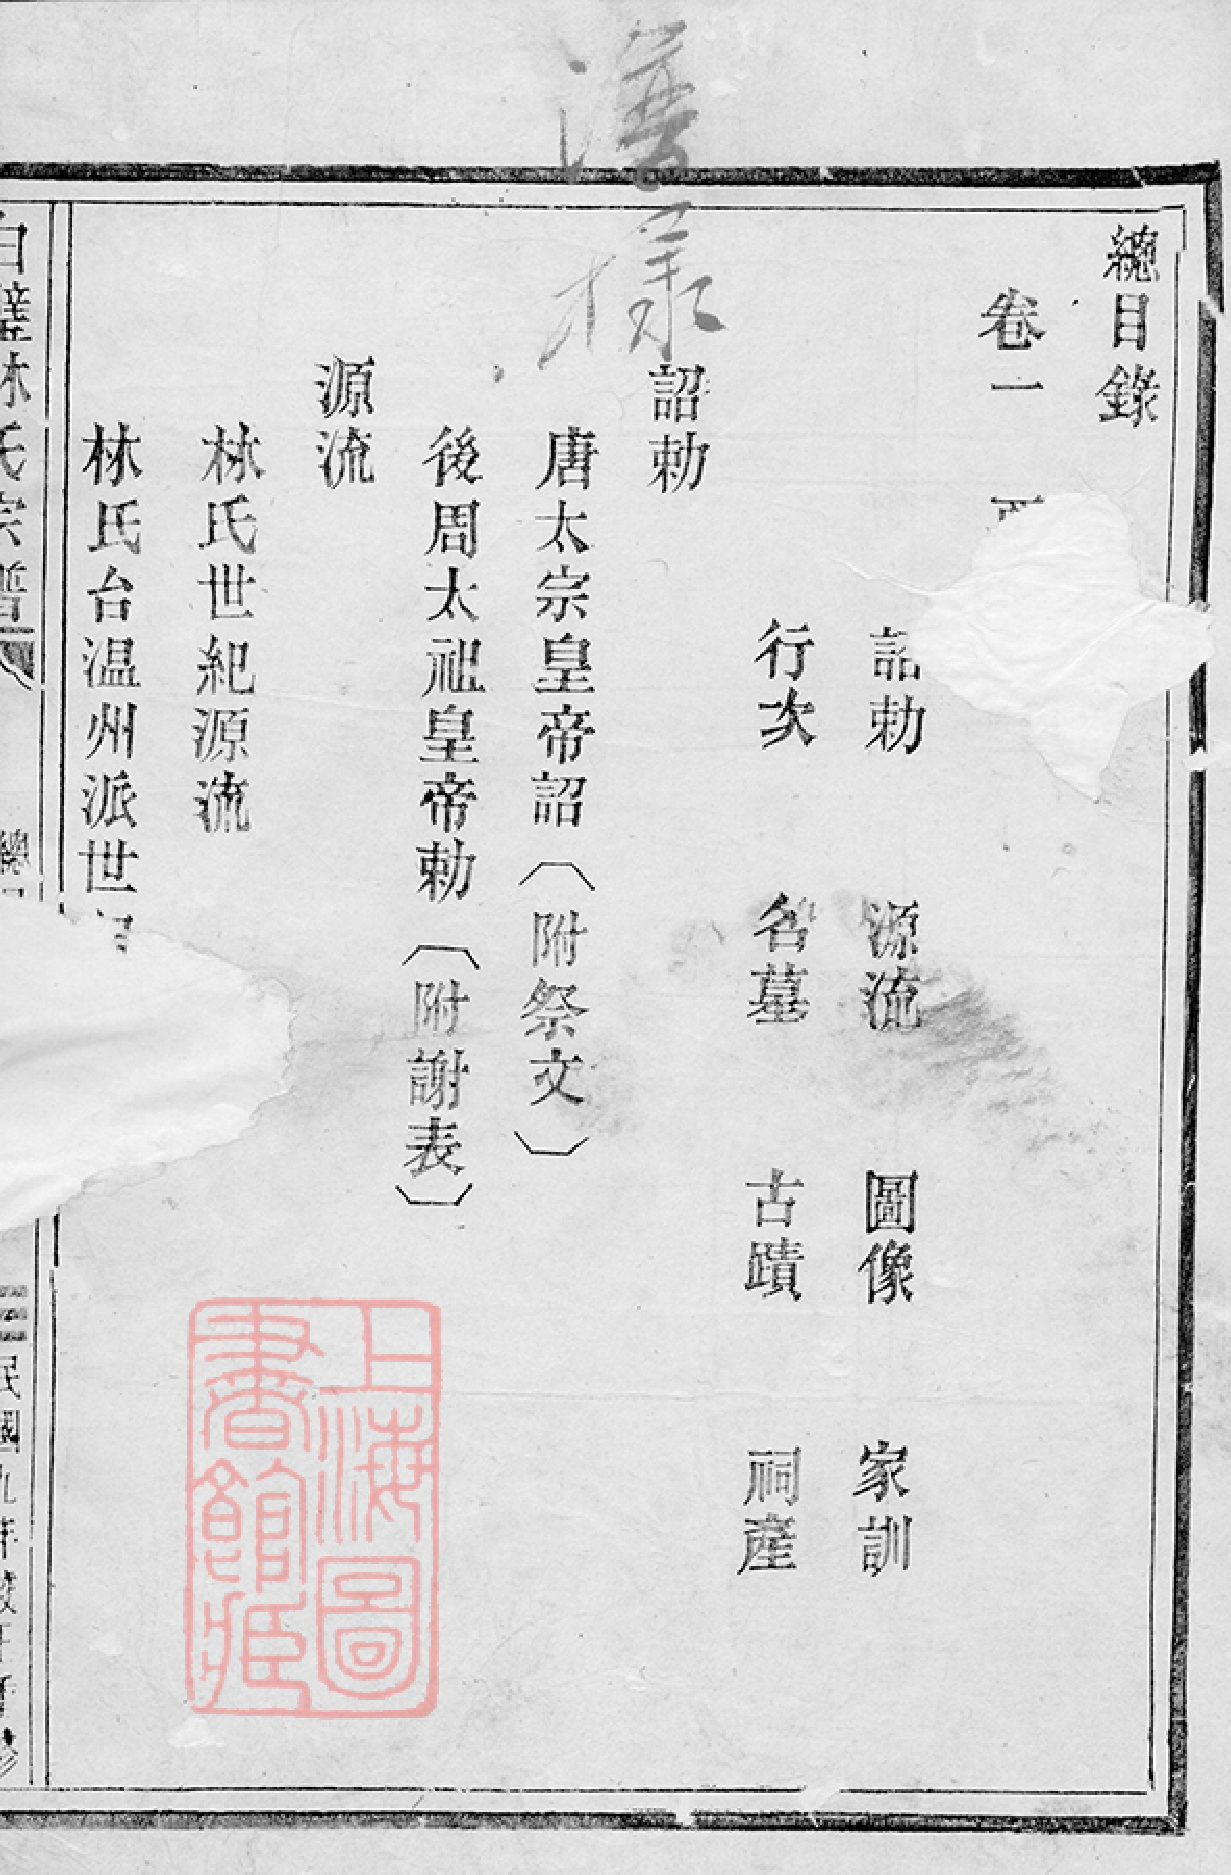 總目錄
卷一
詔勅 源流 圖像 家訓
行次 名墓 古蹟 祠產
詔勅
唐太宗皇帝詔（附祭文）
後周太祖皇帝勅（附謝表）
源流
林氏世紀源流
林氏台温州派世
白璧林氏宗譜 總 民國九年 修
樣
上海圖書館藏